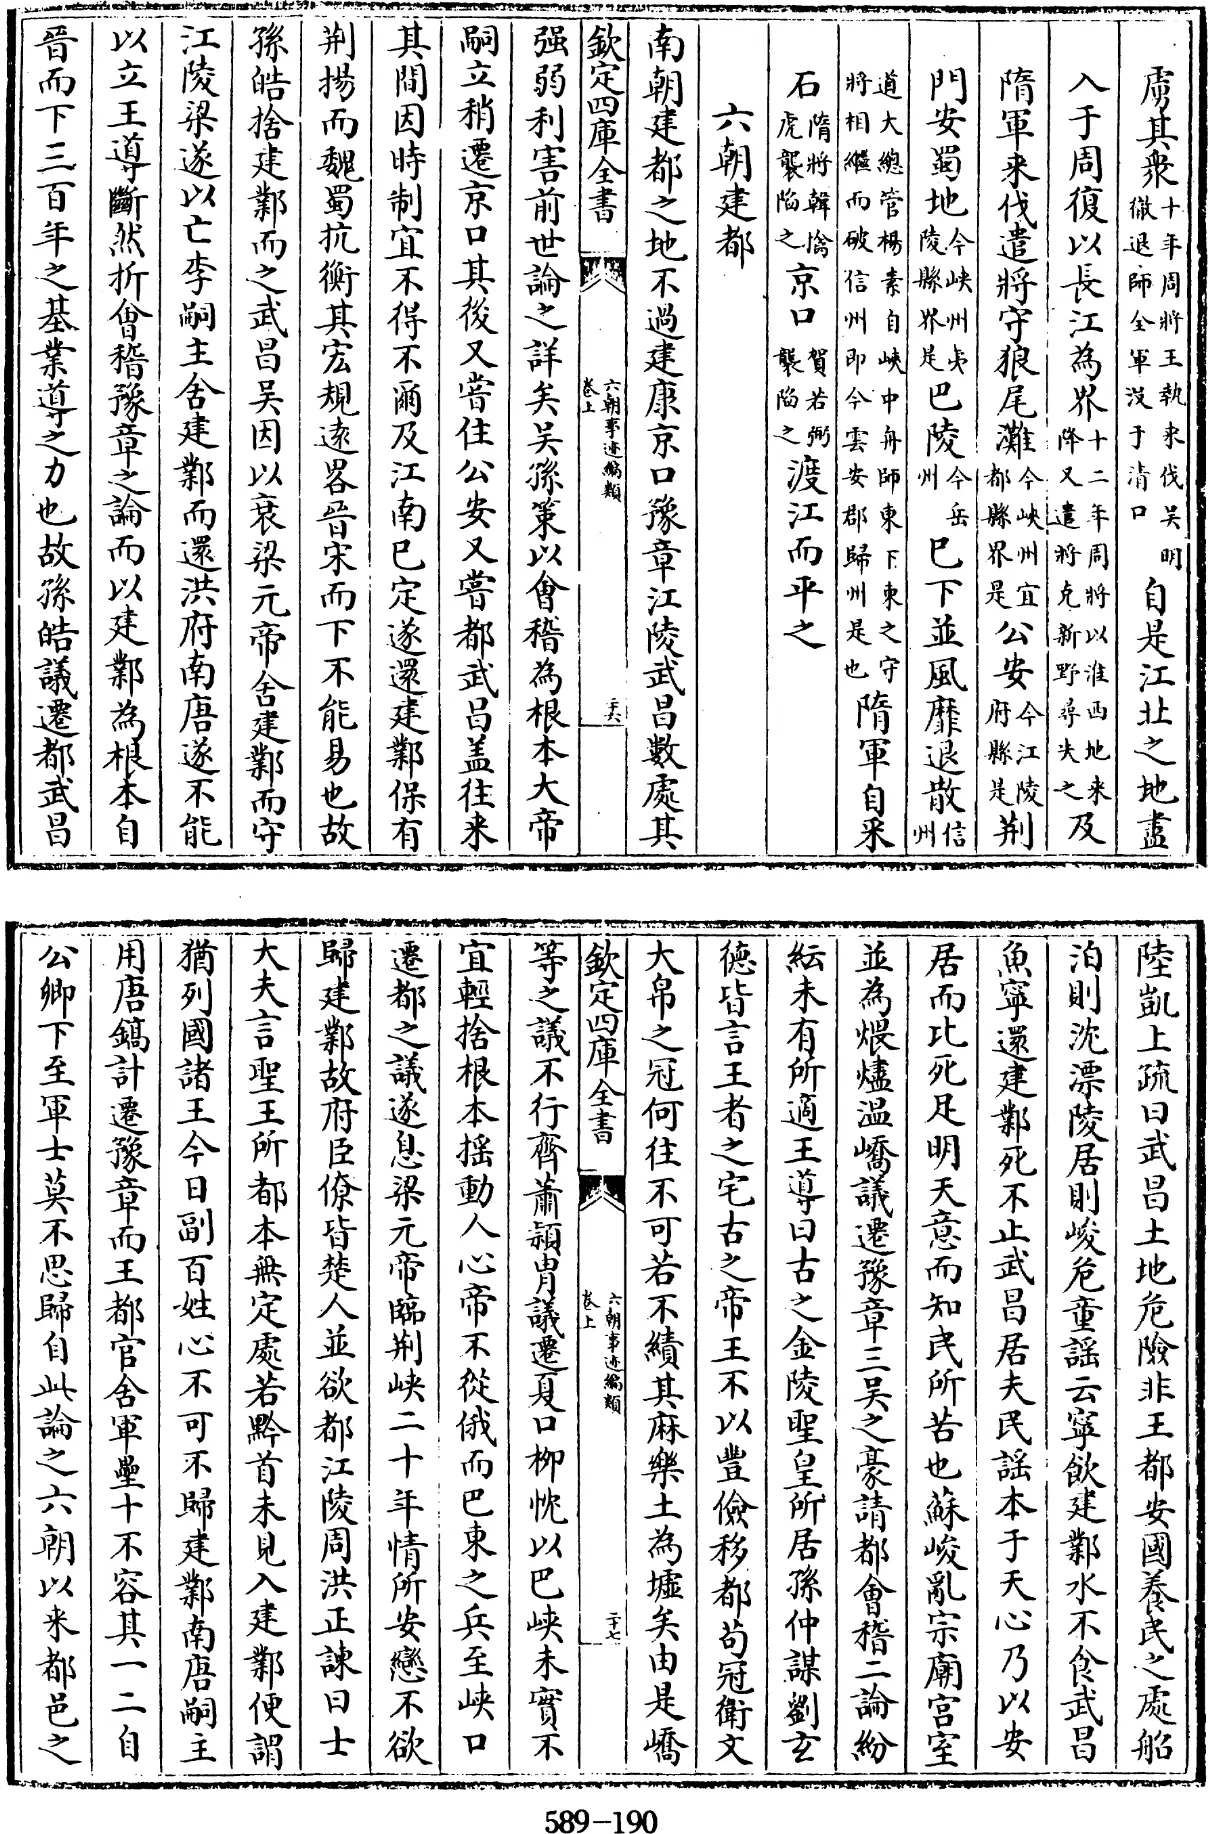 虜其衆十年周將王執来伐吴明徹退師全軍没于清口自是江北之地盡
入于周復以長江為界十二年周將以淮西地来降又遣將克新野尋失之及
隋軍来伐遣將守狼尾灘今峽州宜都縣界是公安今江陵府縣是荆
門安蜀地今峽州夷陵縣界是巴陵今岳州巴下並風靡退散信州
道大總管楊素自峽中舟師東下東之守將相繼而破信州即今雲安郡歸州是也隋軍自采
石隋將韓擒虎襲陷之京口賀若弼襲陷之渡江而平之
六朝建都
南朝建都之地不過建康京口豫章江陵武昌數處其
欽定四庫全書
六朝事迹編類
卷上
二十六
强弱利害前世論之詳矣吴孫策以㑹稽為根本大帝
嗣立稍遷京口其後又嘗住公安又嘗都武昌盖往来
其間因時制宜不得不爾及江南已定遂還建鄴保有
荆揚而魏蜀抗衡其宏規逺畧晉宋而下不能易也故
孫皓捨建鄴而之武昌吴因以衰梁元帝舍建鄴而守
江陵梁遂以亡李嗣主舍建鄴而還洪府南唐遂不能
以立王導斷然折㑹稽豫章之論而以建鄴為根本自
晉而下三百年之基業導之力也故孫皓議遷都武昌
陸凱上疏曰武昌土地危險非王都安國養民之處船
泊則沈漂陵居則峻危童謡云寜飲建鄴水不食武昌
魚寜還建鄴死不止武昌居夫民謡本于天心乃以安
居而比死足明天意而知民所苦也蘇峻亂宗廟宫室
並為煨燼温嶠議遷豫章三吴之豪請都會稽二論紛
紜未有所適王導曰古之金陵聖皇所居孫仲謀劉玄
德皆言王者之宅古之帝王不以豐儉移都苟冠衛文
大帛之冠何往不可若不績其麻樂土為墟矣由是嶠
欽定四庫全書
六朝事迹編類
卷上
二十七
等之議不行齊蕭頴胄議遷夏口柳忱以巴峽未賓不
宜輕捨根本揺動人心帝不從俄而巴東之兵至峽口
遷都之議遂息梁元帝臨荆峽二十年情所安戀不欲
歸建鄴故府臣僚皆楚人並欲都江陵周洪正諫曰士
大夫言聖王所都本無定處若黔首未見入建鄴便謂
猶列國諸王今日副百姓心不可不歸建鄴南唐嗣主
用唐鎬計遷豫章而王都官舍軍壘十不容其一二自
公卿下至軍士莫不思歸自此論之六朝以来都邑之
589-190